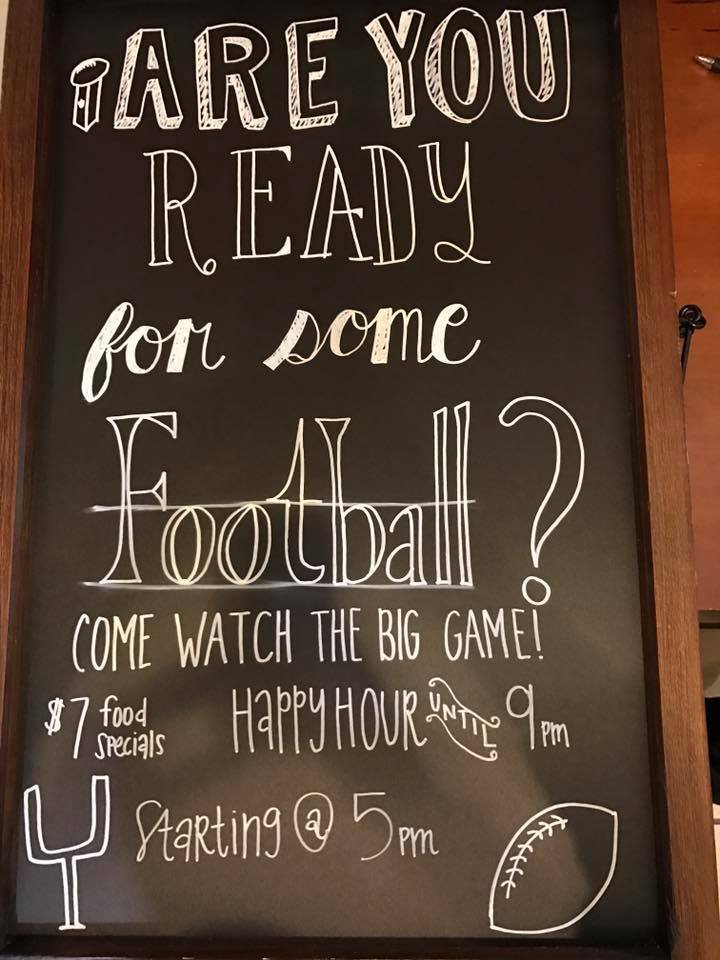 ¡ARE YOU
READY
for some
Football?
COME WATCH THE BIG GAME!
$7 food specials HAPPY HOUR UNTIL 9pm
Starting @ 5pm